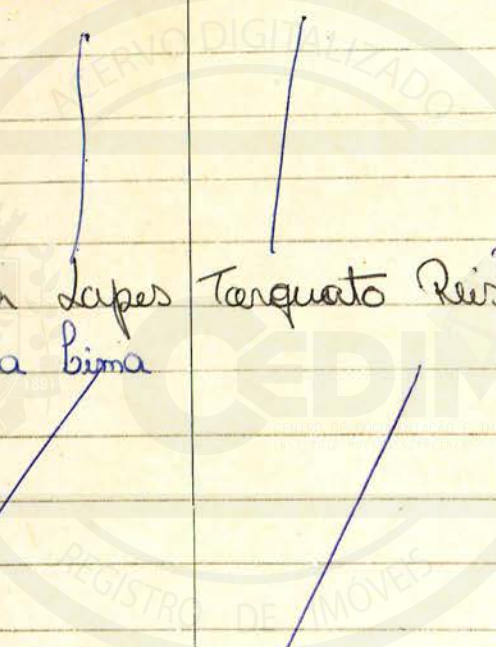 ACERVO DIGITALIZADO
Lopes Torquato Reis
a Lima
1891
CEDIM
REGISTRO DE IMÓVEIS